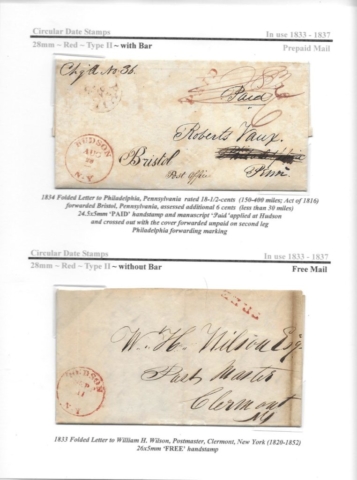 Circular Date Stamps
In use 1833 - 1837
28mm ~ Red ~ Type II ~ with Bar
Prepaid Mail
Chg A No 36.
Paid
Roberts Vaux.
Bristol
Post Office
Penn
HUDSON
N.Y
1834 Folded Letter to Philadelphia, Pennsylvania rated 18-1/2-cents (150-400 miles; Act of 1816)
forwarded Bristol, Pennsylvania, assessed additional 6 cents (less than 30 miles)
24.5x5mm 'PAID' handstamp and manuscript 'Paid' applied at Hudson
and crossed out with the cover forwarded unpaid on second leg
Philadelphia forwarding marking
Circular Date Stamps
In use 1833 - 1837
28mm ~ Red ~ Type II ~ without Bar
Free Mail
W. H. Wilson Esq
Post Master
Clermont
NY
HUDSON
N.Y
1833 Folded Letter to William H. Wilson, Postmaster, Clermont, New York (1820-1852)
26x5mm 'FREE' handstamp